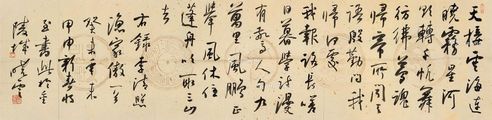 天接雲濤連
曉霧星河
欲轉千帆舞
彷彿夢魂
歸帝所聞天
語殷勤問我
歸何處
我報路長嗟
日暮學詩謾
有驚人句九
萬里風鵬正
舉風休住
蓬舟吹取三山
去
右錄李清照
漁家傲一首
癸未年末
甲申新春
書此於金
陵 曉雲